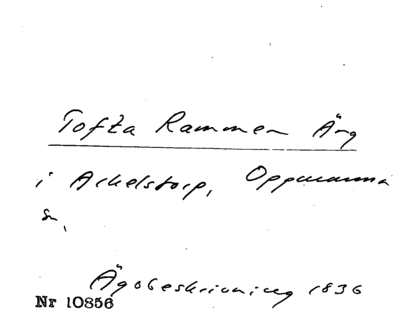 Tofta Rammen Äng
i Arkelstorp, Oppmanna
sn,
Ägobeskrivning 1836
Nr 10856